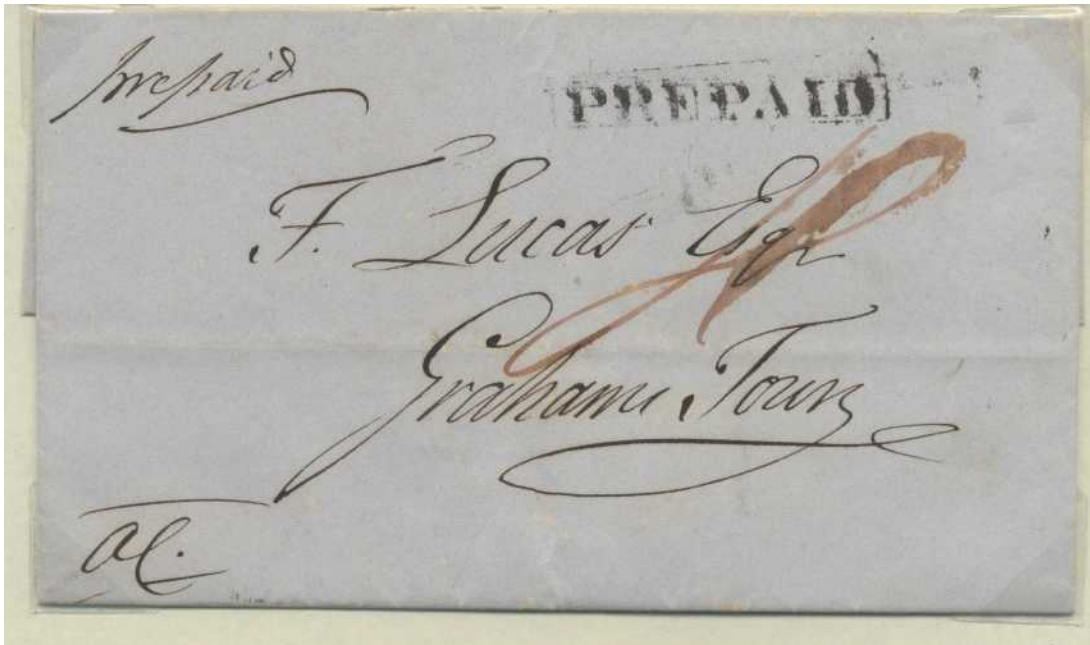 prepaid
PREPAID
F. Lucas Esqr
Grahams Town